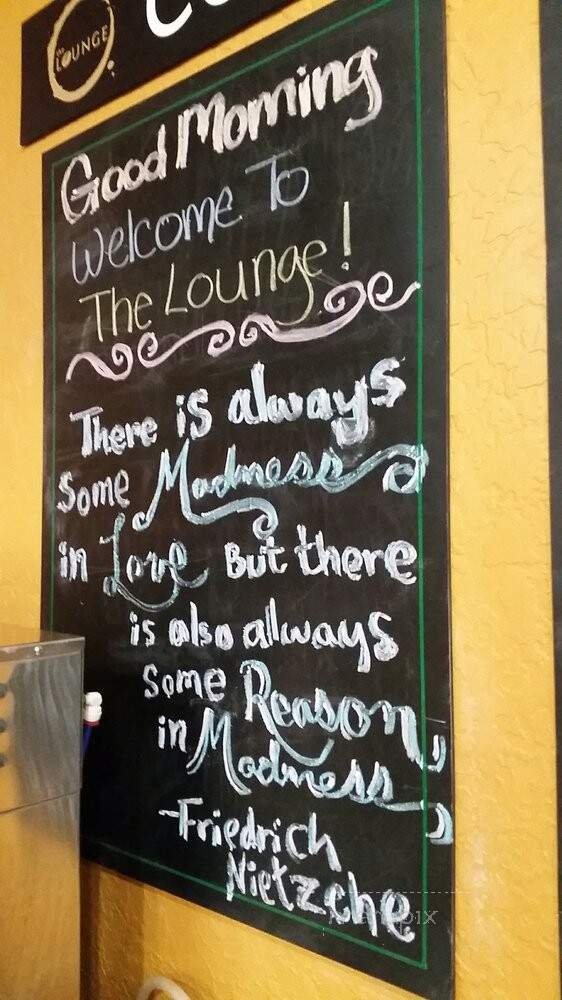 LOUNGE
Good Morning
Welcome To
The Lounge!
There is always
some Madness
in Love But there
is also allways
some Reason
in Madness
-Friedrich
Nietzche